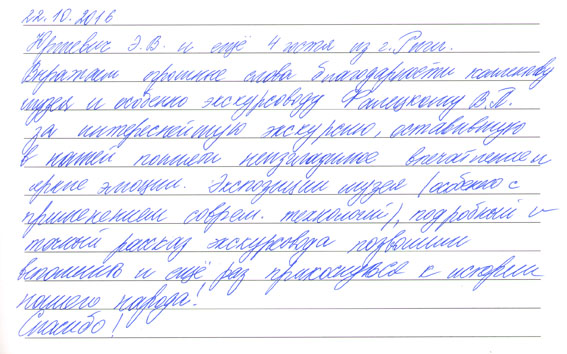 22.10.2016
Юркевич Э.В. и ещё 4 гостя из г. Риги.
Выражаем огромные слова благодарности коллективу
музея и особенно экскурсоводу В.П.
за интереснейшую экскурсию, оставившую
в нашей памяти неизгладимое впечатление и
яркие эмоции. Экспозиции музея (особенно с
применением соврем. технологий), подробный и
точный рассказ экскурсовода позволили
вспомнить и ещё раз прикоснуться к истории
нашего народа!
Спасибо!